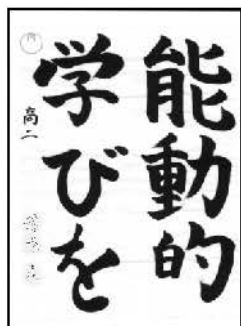 能動的
学びを
高二